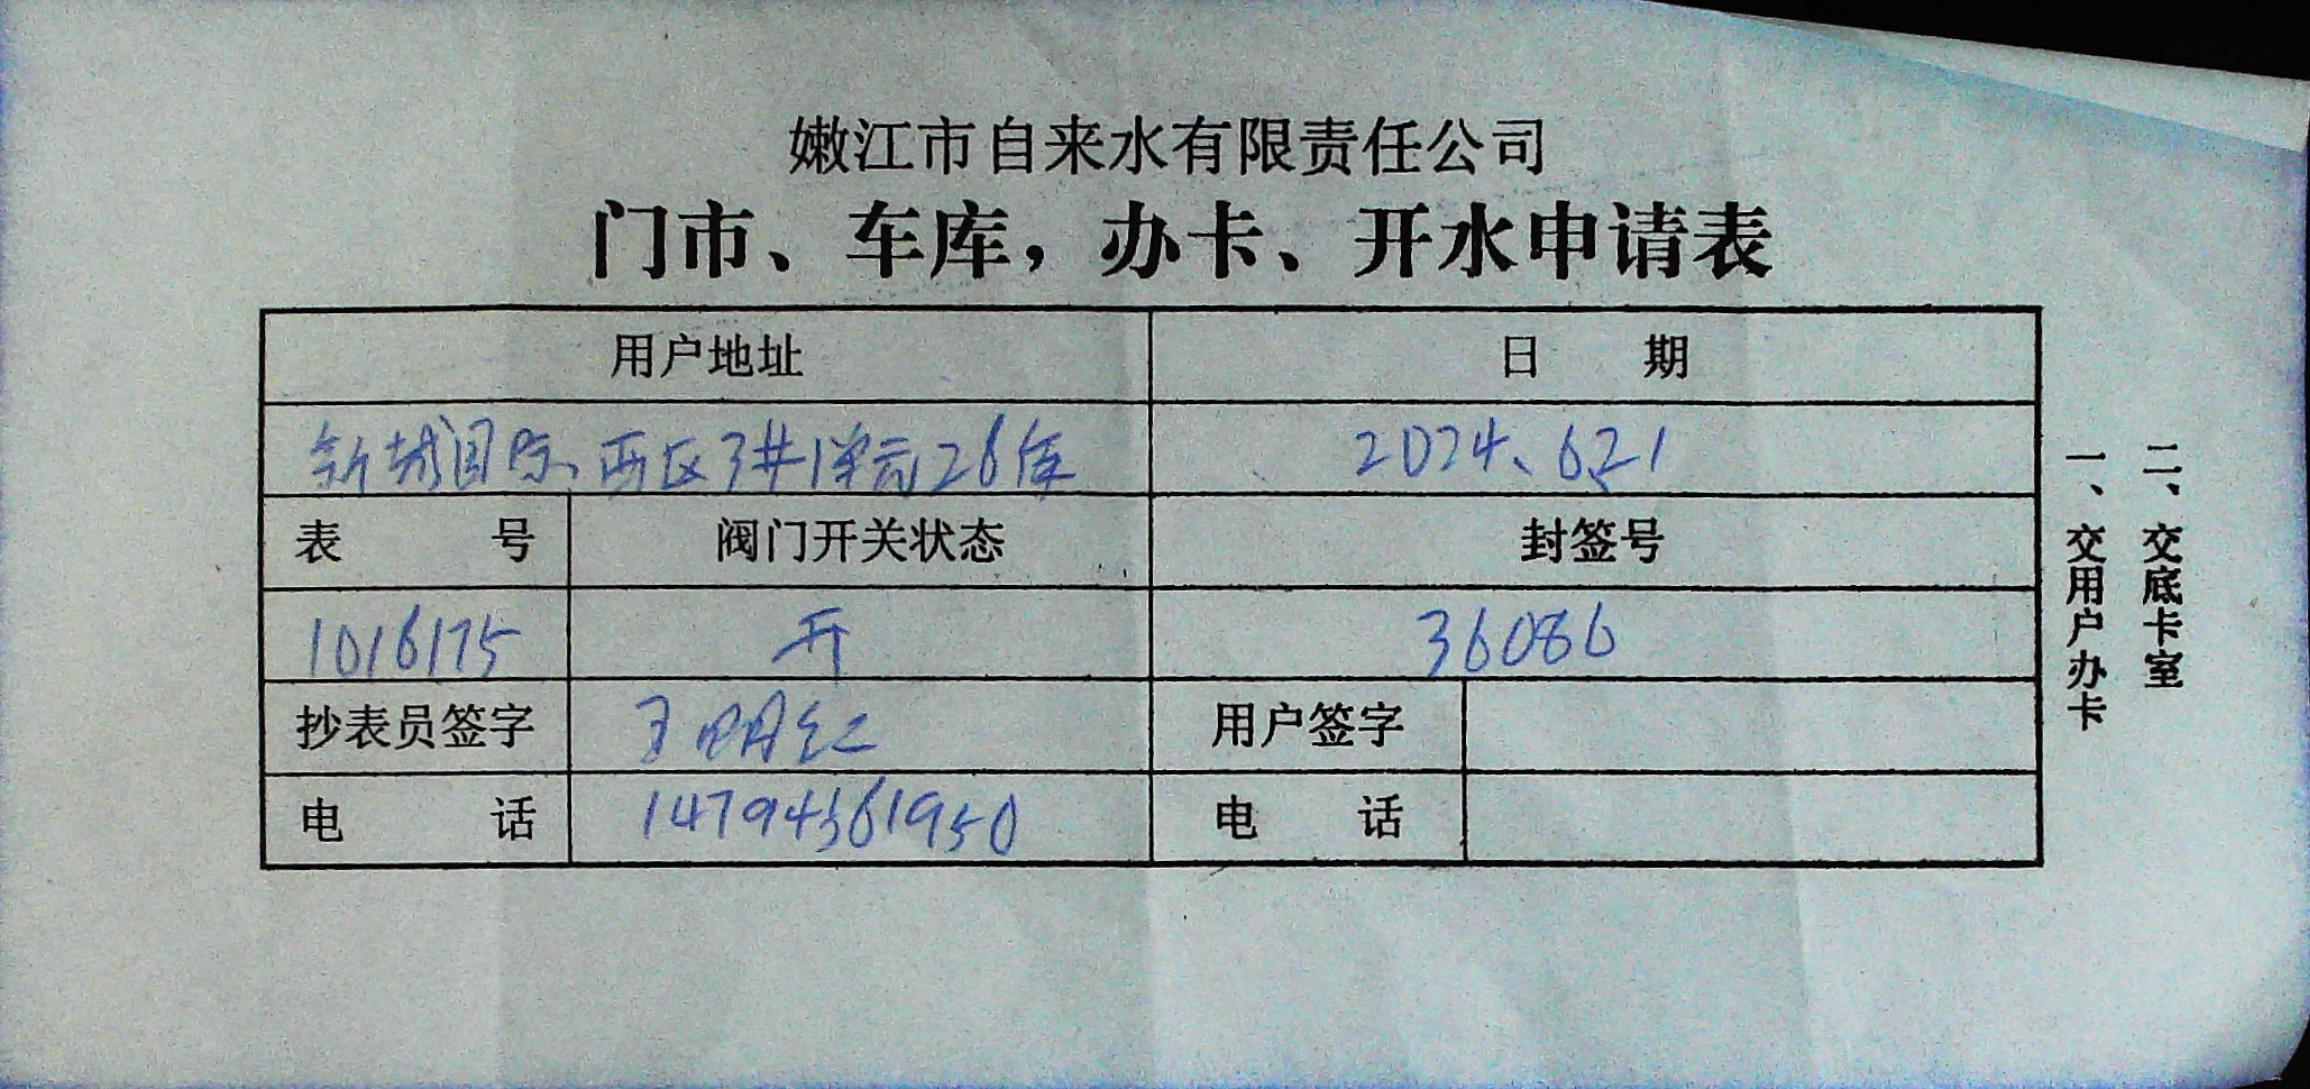 嫩江市自来水有限责任公司
门市、车库，办卡、开水申请表
用户地址 日 期
新城国际、西区3#1单元26库 2024、6、21
表 号 阀门开关状态 封签号
1016175 开 36086
抄表员签字 王明红 用户签字
电 话 14794561950 电 话
一、交用户办卡
二、交底卡室